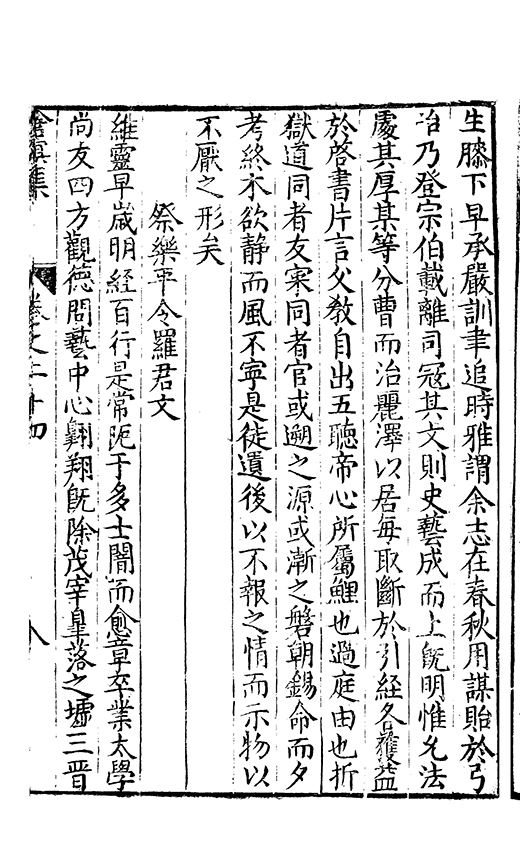 生膝下早承嚴訓聿追時雅謂余志在春秋用謀貽於弓
冶乃登宗伯載離司冠其文則史藝成而上旣明惟允法
處其厚某等分曹而治麗澤以居每取斷於引經各獲益
於啓書片言父敎自出五聽帝心所屬鯉也過庭由也折
獄道同者友寀同者官或遡之源或漸之磐朝錫命而夕
考終木欲静而風不寧是徒遺後以不報之情而示物以
不厭之形矣
祭樂平令羅君文
維靈早歲明經百行是常阨于多士闇而愈章卒業太學
尚友四方觀德問藝中心翺翔旣除茂宰臯落之墟三晋
滄溟集 卷之二十四 八